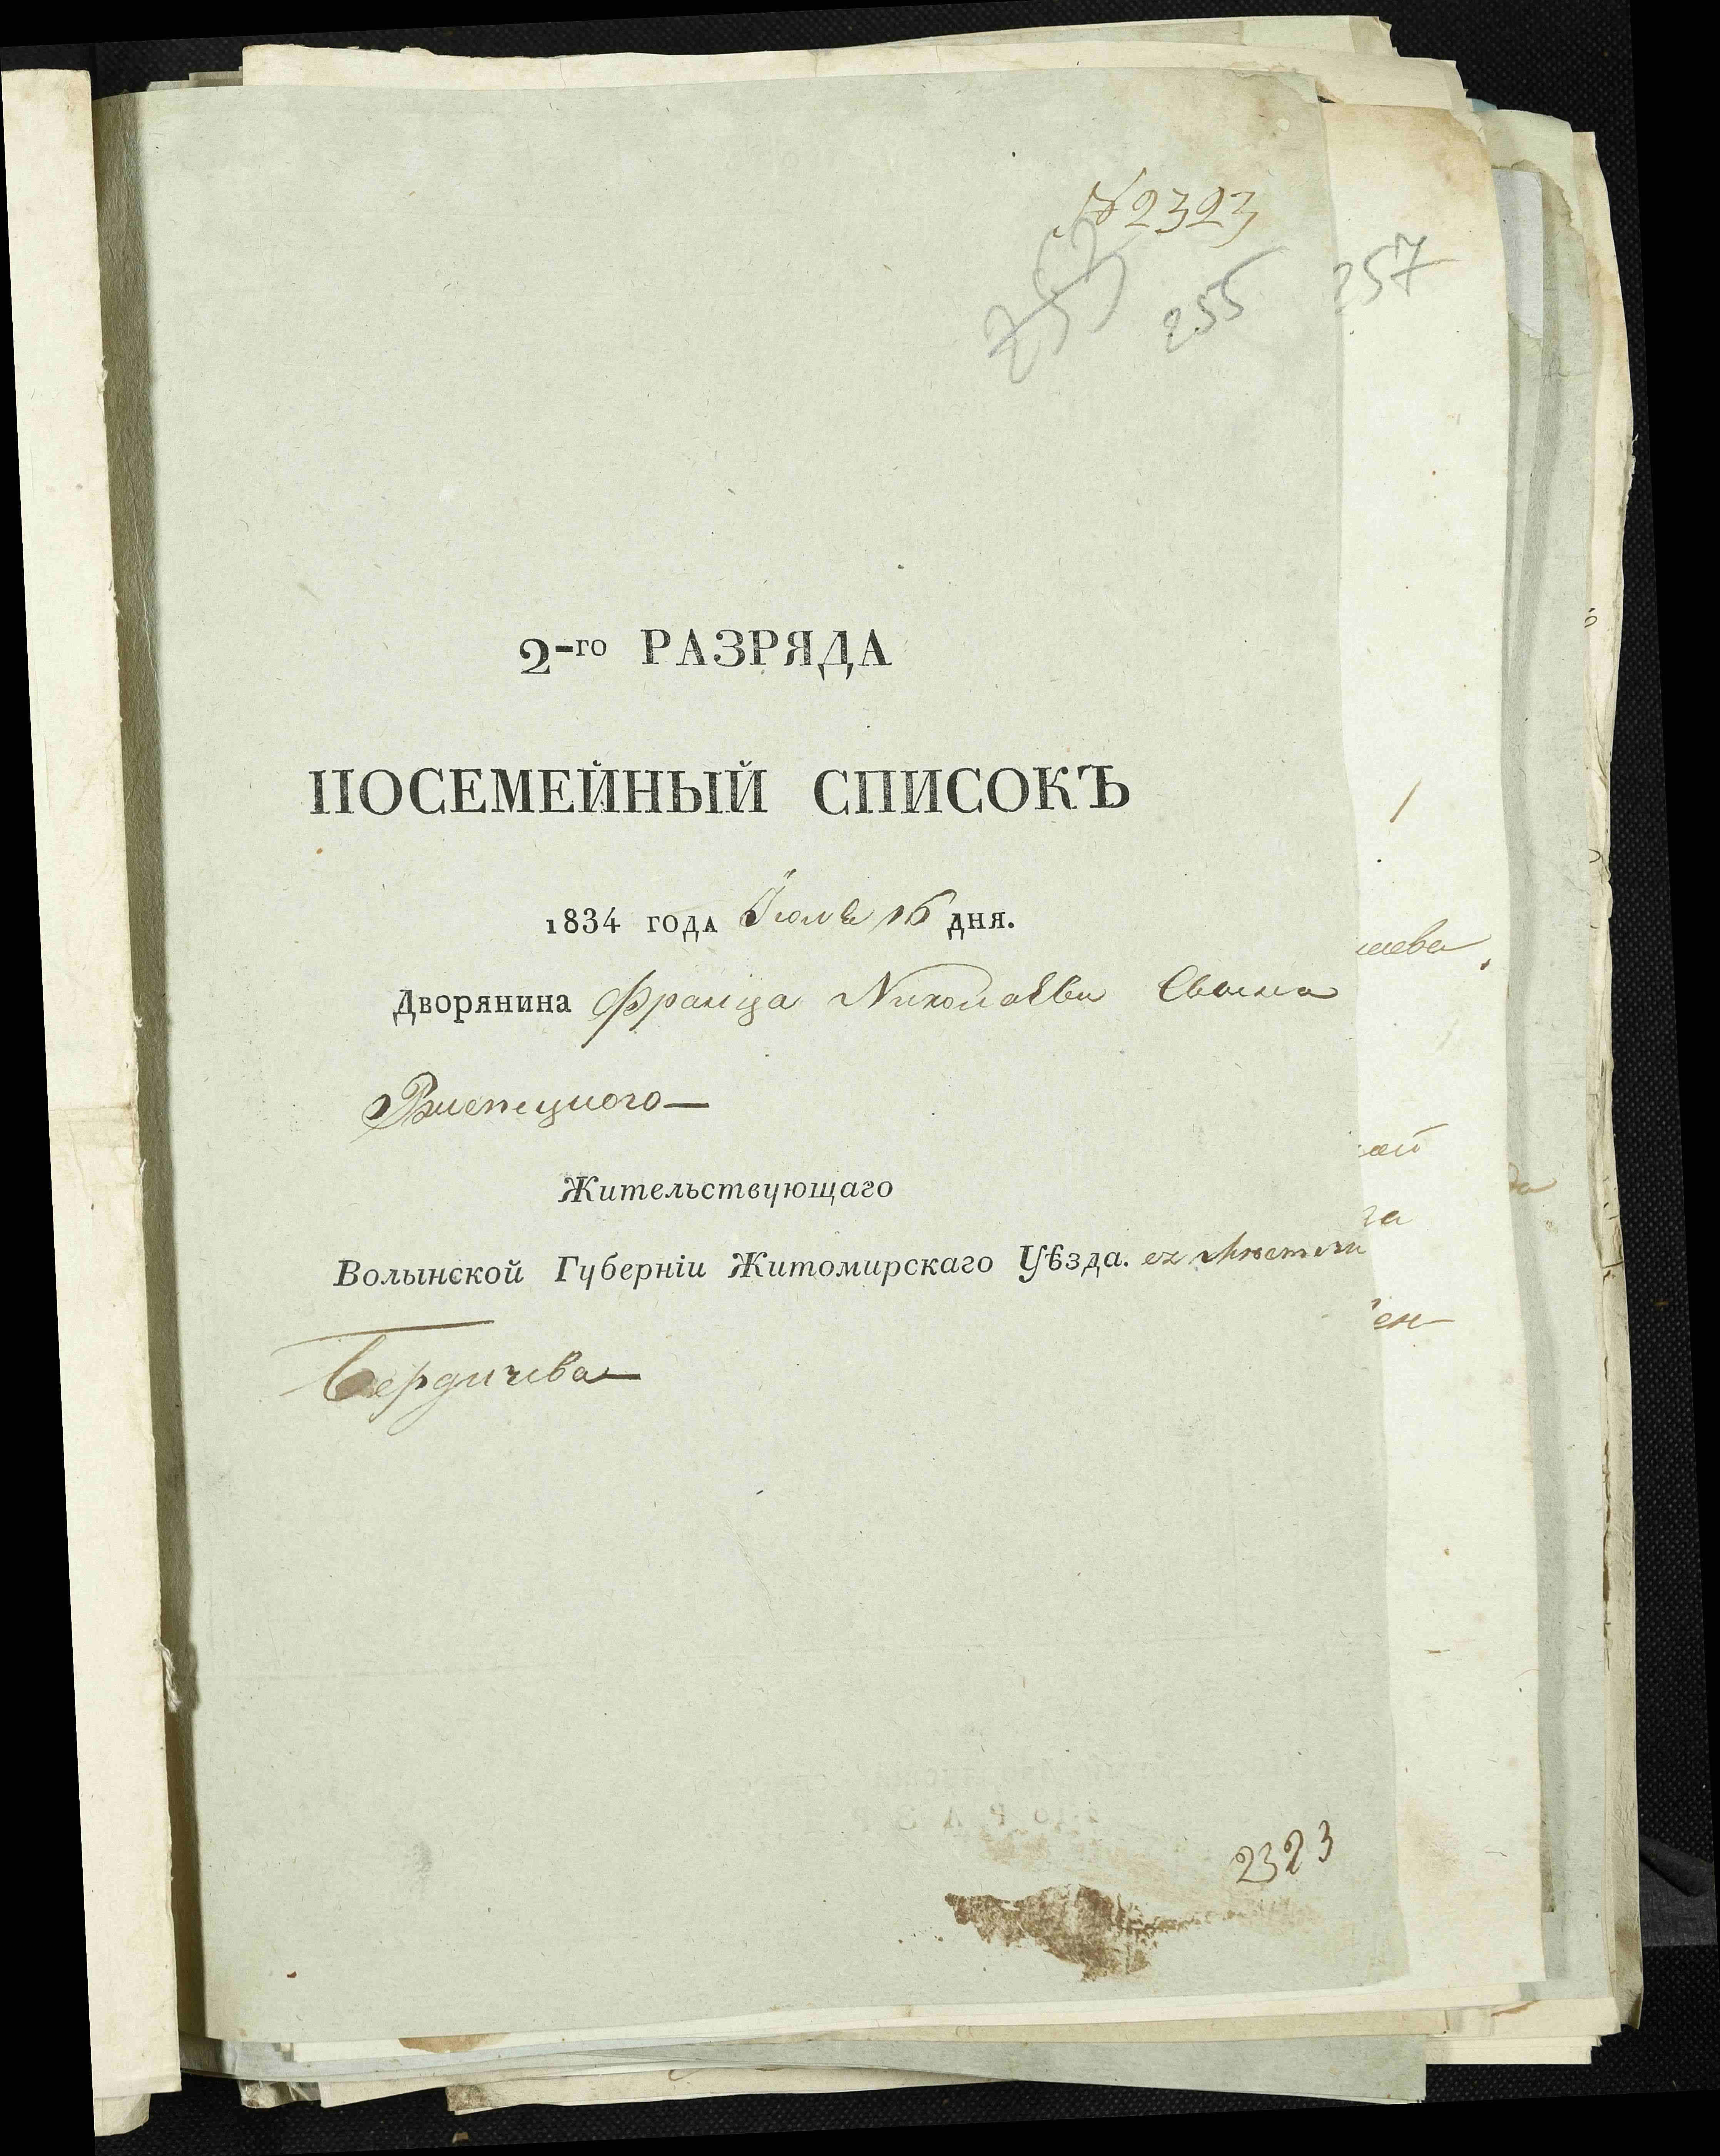 № 2323
255 257
2-го РАЗРЯДА
ПОСЕМЕЙНЫЙ СПИСОКЪ
1834 года Іюля 16 дня.
Дворянина Франца Николаева Сына
Ржепецкого
Жительствующаго
Волынской Губерніи Житомирскаго Уѣзда. въ Мѣстечки
Бердичева
2323